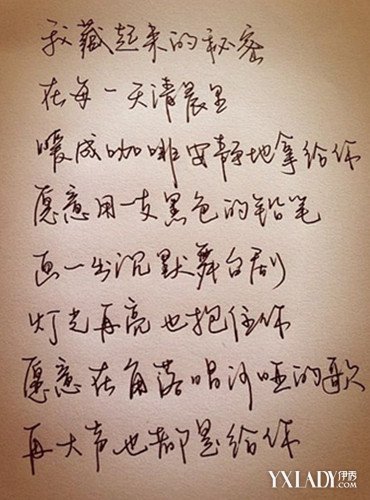 我藏起来的秘密
在每一天清晨里
暖成咖啡安静地拿给你
愿意用一支黑色的铅笔
画一出沉默舞台剧
灯光再亮也抱住你
愿意在角落唱沙哑的歌
再大声也都是给你
YXLADY.COM伊秀